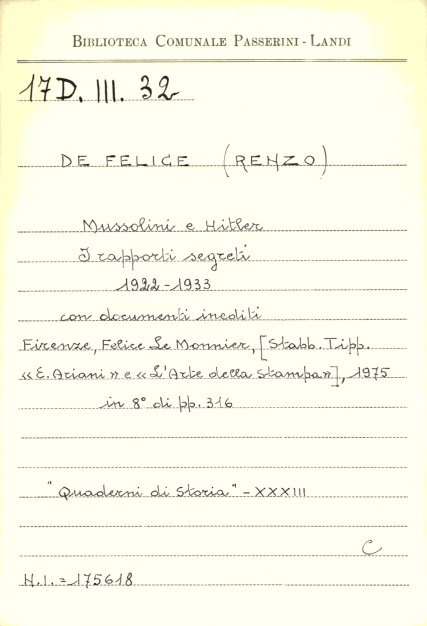 BIBLIOTECA COMUNALE PASSERINI - LANDI
17D. III. 32
DE FELICE (RENZO)
Mussolini e Hitler
I rapporti segreti
1922-1933
con documenti inediti
Firenze, Felice Le Monnier, [Stabb. Tipp.
«E. Ariani» e «L'Arte della Stampa»], 1975
in 8° di pp. 316
"Quaderni di Storia" - XXXIII
C
N.I. = 175618